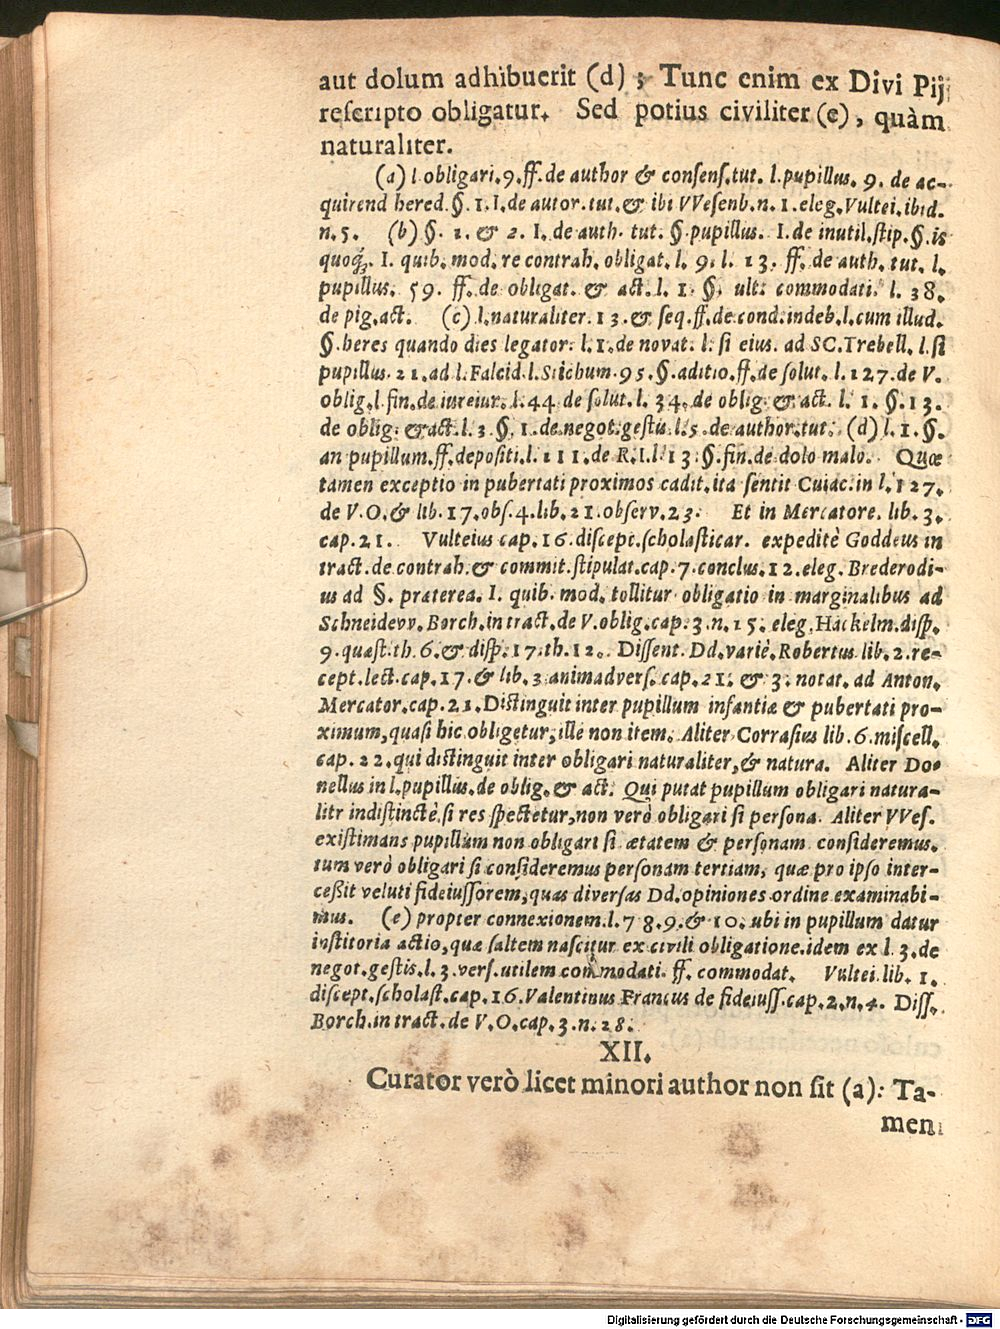 aut dolum adhibuerit (d) ; Tunc enim ex Divi Pij
reſcripto obligatur. Sed potius civiliter (e), quàm
naturaliter.
(a) l obligari.9.ff.de author & conſenſ.tut. l.pupillus. 9. de ac-
quirend hered.§. 1.I.de autor.tut.& ibi VVeſenb.n.1.eleg.Vultei.ibid.
n.5. (b) §. 1. & 2. I. de auth. tut. §.pupillus. I.de inutil.ſtip.§.is
quoq́;. I. quib. mod. re contrah. obligat. l. 9. l. 13. ff. de auth. tut. l.
pupillus. 59. ff. de obligat. & act. l. 1. §. ult. commodati. l. 38.
de pig.act. (c) l.naturaliter.13.& ſeq.ff.de cond.indeb.l.cum illud.
§.heres quando dies legator. l.1.de novat. l. ſi eius. ad SC.Trebell. l.ſi
pupillus. 21.ad l.Falcid.l.Stichum.95.§.aditio.ff.de ſolut.l.127.de V.
oblig.l.fin.de iureiur.l.44 de ſolut.l. 34. de oblig: & act. l. 1. §.13.
de oblig: & act.l.3 §.1.de negot.geſtu l.5.de author.tut. (d) l.1.§.
an pupillum.ff.depoſiti.l.111.de R.I.l.13.§.fin.de dolo malo. Quæ
tamen exceptio in pubertati proximos cadit.ita ſentit Cuiac.in l.127.
de V.O.& lib.17.obſ.4.lib.21.obſerv.23. Et in Mercatore. lib.3.
cap.21. Vulteius cap.16.diſcept.ſcholaſticar. expeditè Goddeus in
tract.de contrah.& commit.ſtipulat.cap.7.concluſ.12.eleg.Brederodi-
us ad §. præterea. I. quib. mod. tollitur obligatio in marginalibus ad
Schneidevv.Borch.in tract.de V.oblig.cap.3.n.15. eleg.Hackelm.diſp.
9.quæſt.th.6.& diſp.17.th.12. Diſſent. Dd.variè.Robertus lib.2.re-
cept.lect.cap.17.& lib.3 animadverſ.cap.21. & 3. notat. ad Anton.
Mercator.cap.21.Diſtinguit inter pupillum infantiæ & pubertati pro-
ximum,quaſi hic obligetur,ille non item. Aliter Corraſius lib.6.miſcell.
cap.22.qui diſtinguit inter obligari naturaliter,& natura. Aliter Do-
nellus in l.pupillus.de oblig.& act. Qui putat pupillum obligari natura-
litr indiſtinctè ſi res ſpectetur,non verò obligari ſi perſona. Aliter VVeſ.
exiſtimans pupillum non obligari ſi ætatem & perſonam conſideremus.
tum verò obligari ſi conſideremus perſonam tertiam, quæ pro ipſo inter-
ceßit veluti fideiuſſorem,quas diverſas Dd.opiniones ordine examinabi-
mus. (e) propter connexionem.l.7 8.9.& 10. ubi in pupillum datur
inſtitoria actio,quæ ſaltem naſcitur ex civili obligatione.idem ex l 3.de
negot.geſtis.l.3.verſ.utilem commodati. ff. commodat. Vultei.lib. 1.
diſcept.ſcholaſt.cap.16.Valentinus Francus de fideiuſſ.cap.2.n.4. Diſſ.
Borch.in tract.de V.O.cap.3.n.28.
XII.
Curator verò licet minori author non ſit (a): Ta-
men
Digitalisierung gefördert durch die Deutsche Forschungsgemeinschaft - DFG